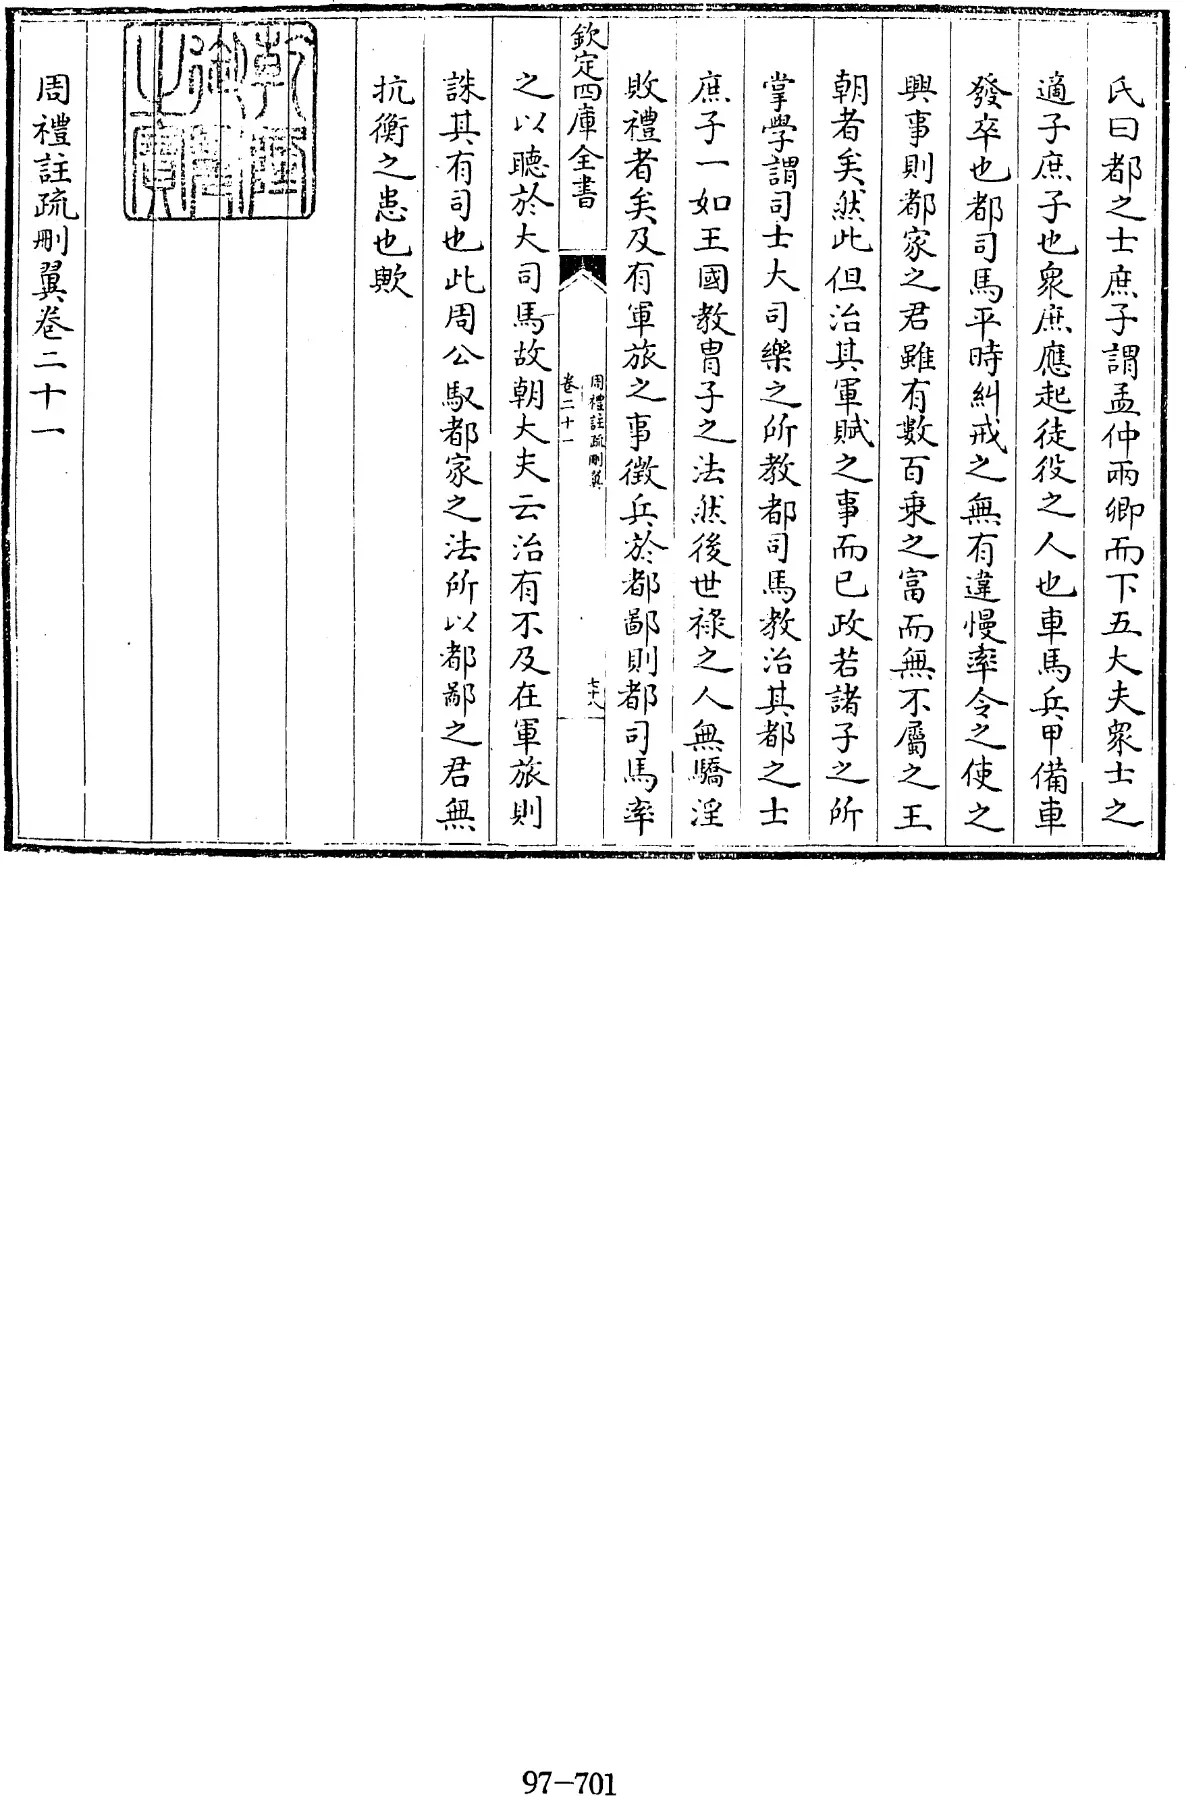 氏曰都之士庶子謂孟仲兩卿而下五大夫衆士之
適子庶子也衆庶應起徒役之人也車馬兵甲備車
發卒也都司馬平時糾戒之無有違慢率令之使之
興事則都家之君雖有數百乗之富而無不屬之王
朝者矣然此但治其軍賦之事而已政若諸子之所
掌學謂司士大司樂之所教都司馬教治其都之士
庶子一如王國教胄子之法然後世祿之人無驕淫
敗禮者矣及有軍旅之事徵兵於都鄙則都司馬率
欽定四庫全書
周禮註疏刪翼
卷二十一
七六
之以聽於大司馬故朝大夫云治有不及在軍旅則
誅其有司也此周公馭都家之法所以都鄙之君無
抗衡之患也歟
乾隆御覽之寶
周禮註疏刪翼卷二十一
97-701